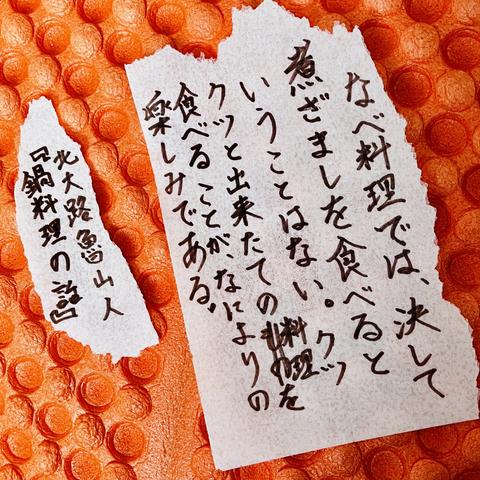 なべ料理では、決して
煮ざましを食べると
いうことはない。クッ
クッと出来たての料理を
食べることが、なによりの
楽しみである。
北大路魯山人
『鍋料理の話』